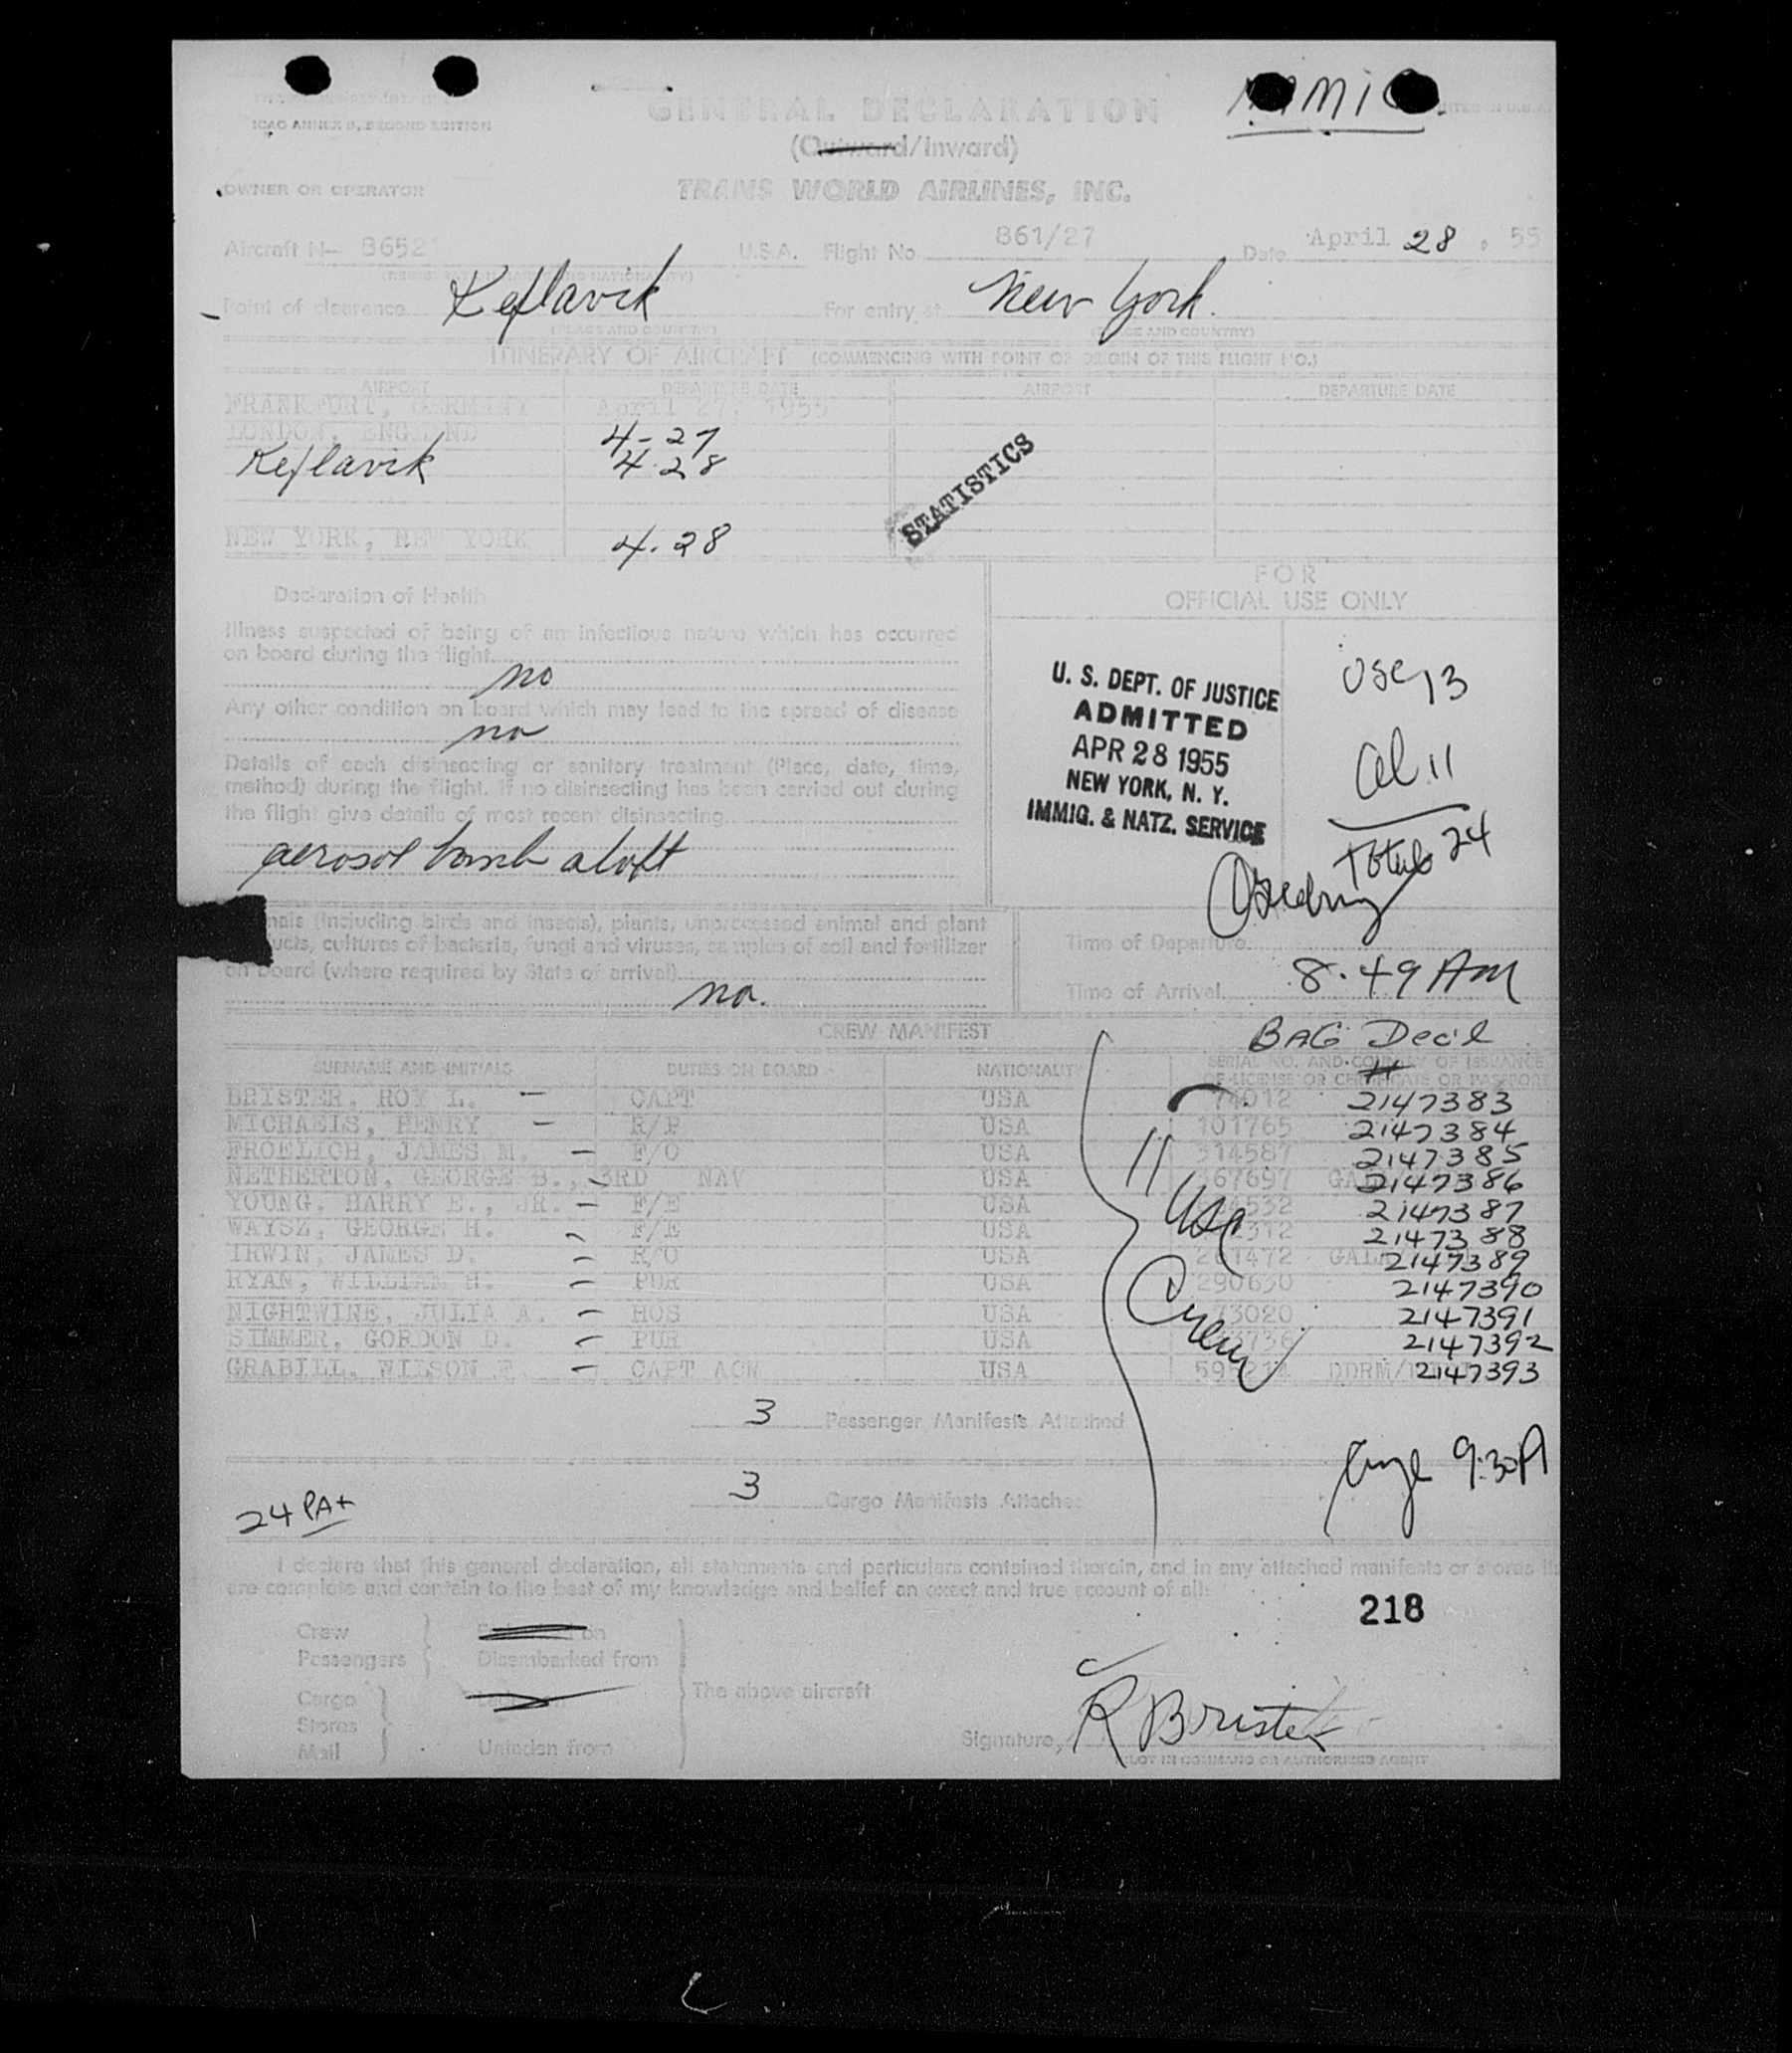 ICAO ANNEX 9, SECOND EDITION
GENERAL DECLARATION
(Outward/Inward)
OWNER OR OPERATOR TRANS WORLD AIRLINES, INC.
Aircraft N— 86521 U.S.A. Flight No 861/27 Date April 28, 55
Point of clearance Keflavik For entry at New York.
(PLACE AND COUNTRY) (PLACE AND COUNTRY)
ITINERARY OF AIRCRAFT (COMMENCING WITH POINT OF ORIGIN OF THIS FLIGHT NO.)
AIRPORT DEPARTURE DATE AIRPORT DEPARTURE DATE
FRANKFURT, GERMANY April 27, 1955
LONDON, ENGLAND 4-27
Keflavik 4.28
STATISTICS
NEW YORK, NEW YORK 4.28
Declaration of Health
FOR
OFFICIAL USE ONLY
Illness suspected of being of an infectious nature which has occurred
on board during the flight
no
Any other condition on board which may lead to the spread of disease
no
Details of each disinsecting or sanitary treatment (Place, date, time,
method) during the flight. If no disinsecting has been carried out during
the flight give details of most recent disinsecting
aerosol bomb aloft
U. S. DEPT. OF JUSTICE
ADMITTED
APR 28 1955
NEW YORK, N. Y.
IMMIG. & NATZ. SERVICE
USC 13
al 11
Total 24
mals (including birds and insects), plants, unprocessed animal and plant
ucts, cultures of bacteria, fungi and viruses, samples of soil and fertilizer
on board (where required by State of arrival)
no.
Time of Departure
Time of Arrival 8.49 AM
CREW MANIFEST
BAG Dec'l
SURNAME AND INITIALS DUTIES ON BOARD NATIONALITY SERIAL NO. AND COUNTRY OF ISSUANCE
OF LICENSE OR CERTIFICATE OR PASSPORT
BRISTER, ROY L. — CAPT USA 74012 2147383
MICHAELS, HENRY — R/P USA 101765 2147384
FROELICH, JAMES M. — F/O USA 314587 2147385
NETHERTON, GEORGE B., 3RD NAV USA 67697 2147386
YOUNG, HARRY E., JR. — F/E USA 2147387
WAYSZ, GEORGE H. — F/E USA 2147388
IRWIN, JAMES D. — R/O USA 261472 2147389
RYAN, WILLIAM H. — PUR USA 290630 2147390
NIGHTWINE, JULIA A. — HOS USA 73020 2147391
SIMMER, GORDON D. — PUR USA 2147392
GRABILL, WILSON F. — CAPT ACN USA 2147393
11
USA
Crew
3 Passenger Manifests Attached
9:30A
3 Cargo Manifests Attached
24 PA+
I declare that this general declaration, all statements and particulars contained therein, and in any attached manifests or stores
are complete and contain to the best of my knowledge and belief an exact and true account of all:
218
Crew
Passengers Disembarked from
Cargo
Stores
Mail Unladen from
The above aircraft
Signature, R Brister
PILOT IN COMMAND OR AUTHORIZED AGENT